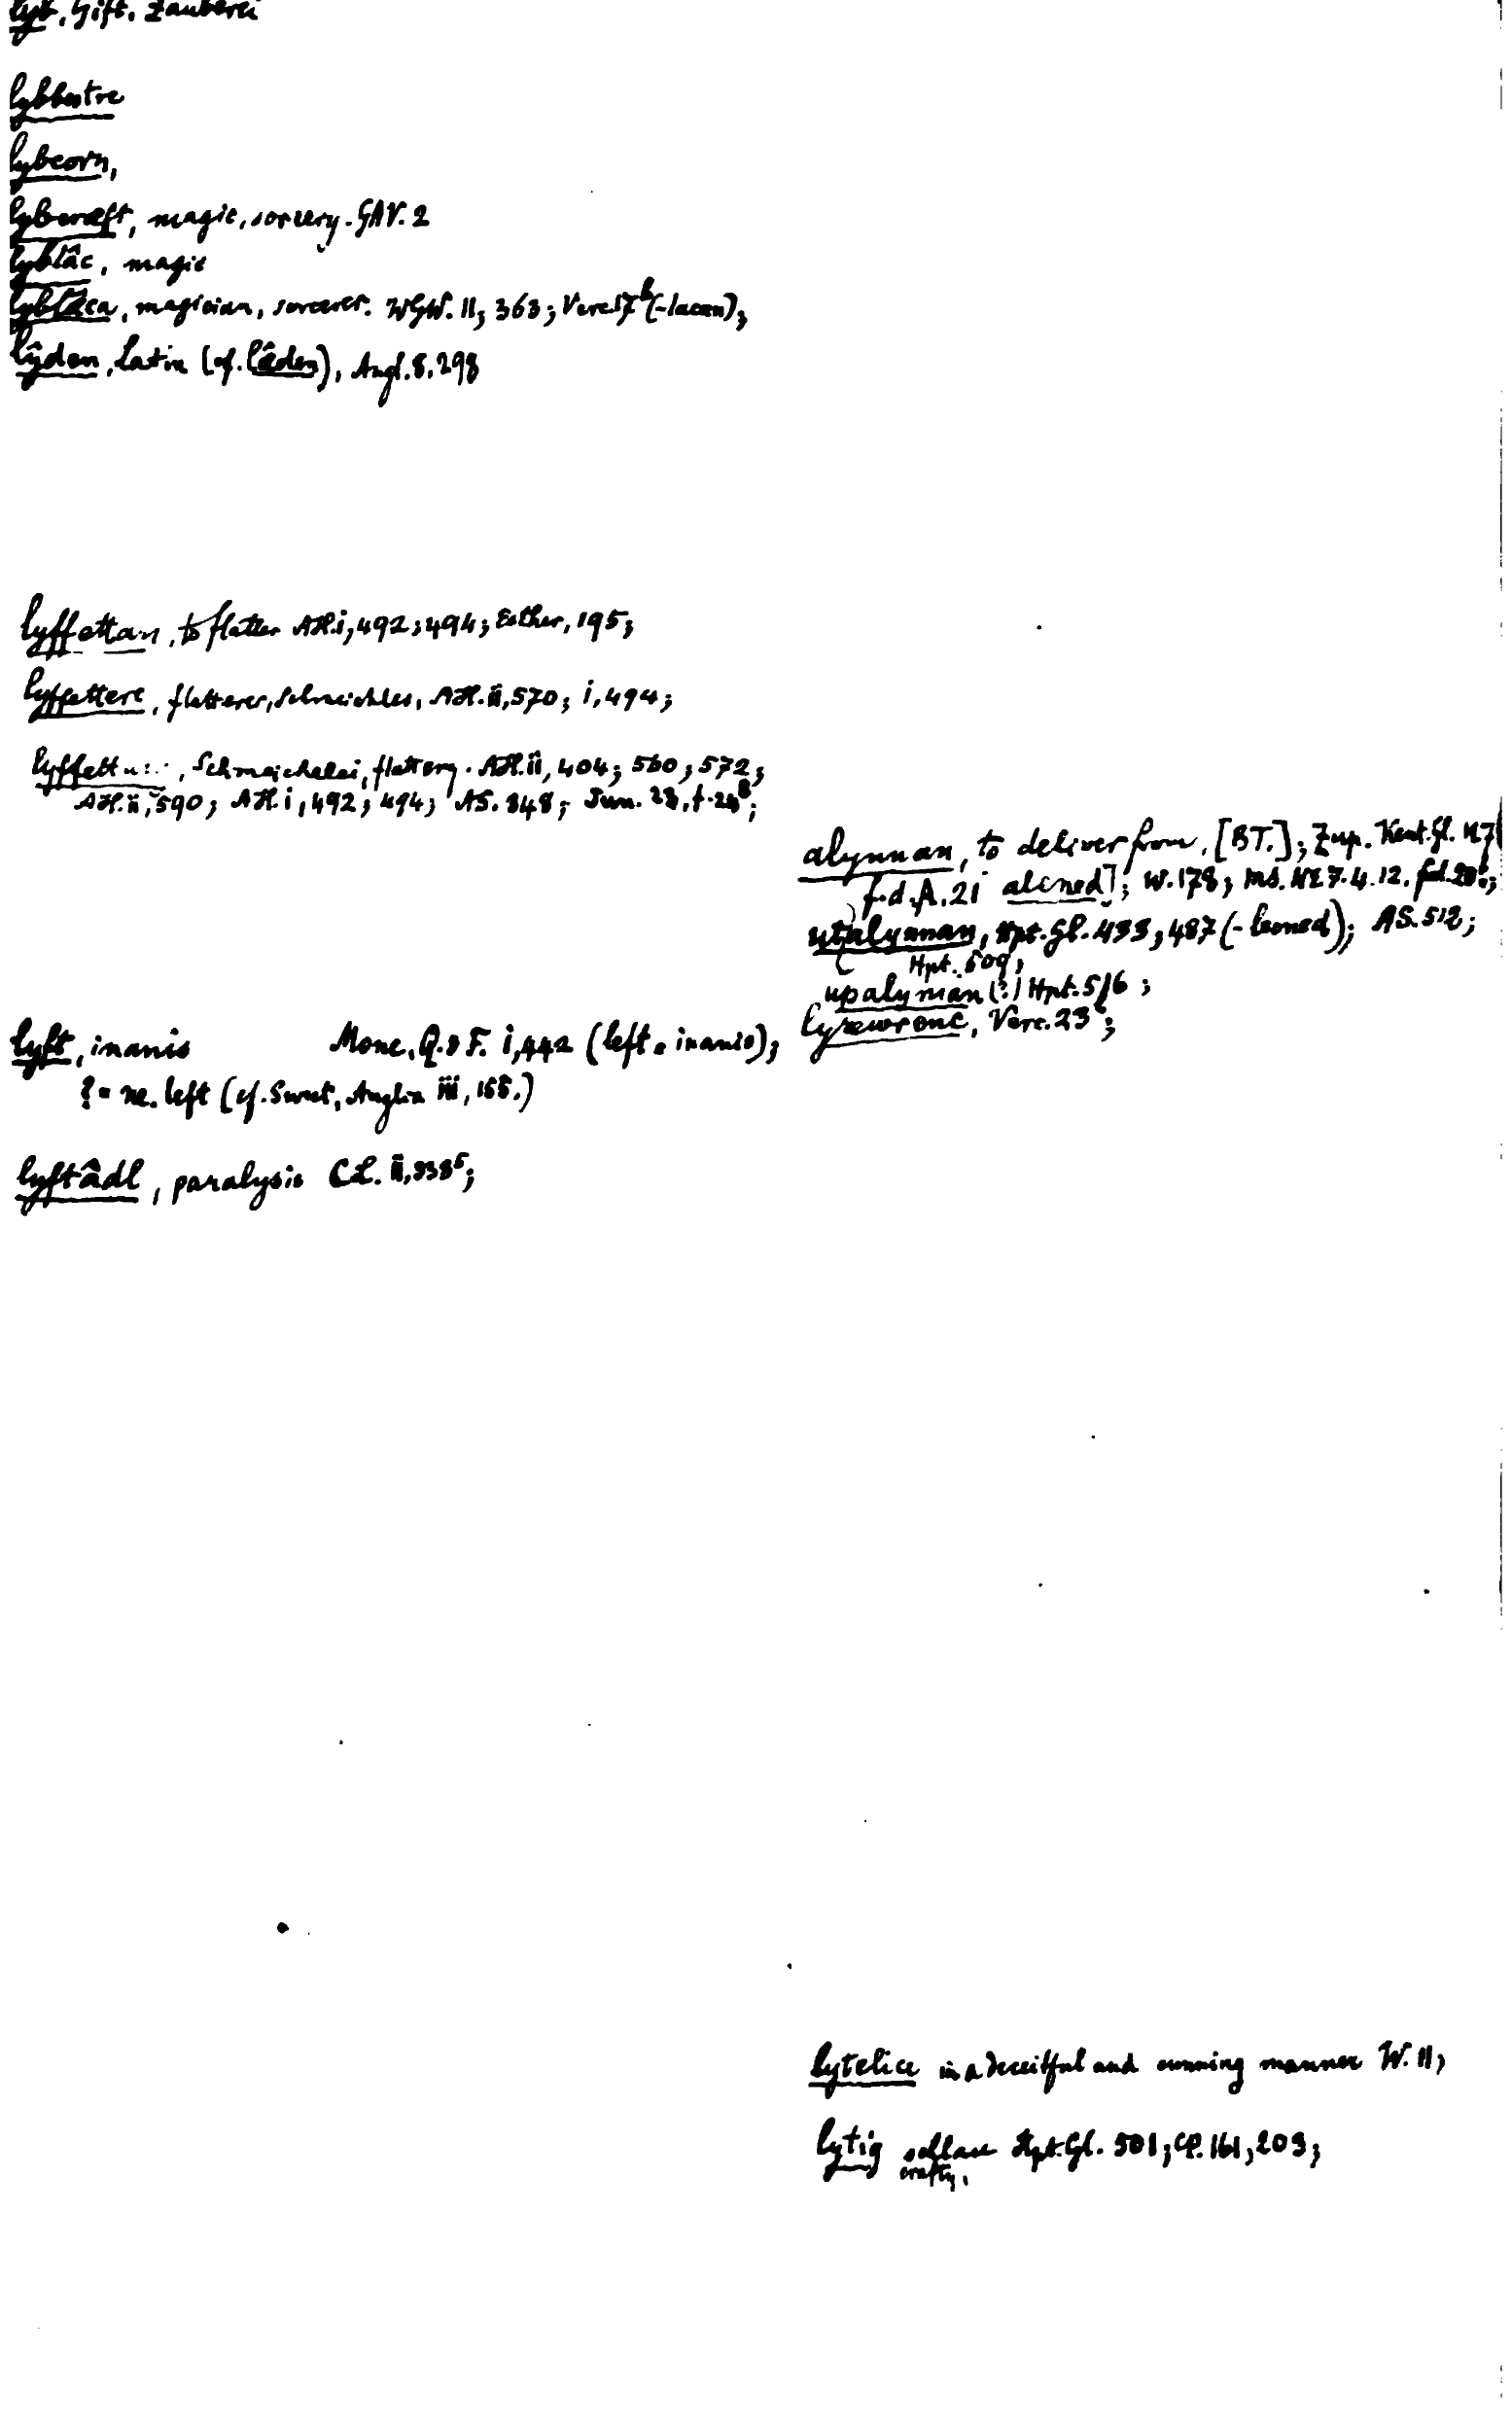 lyb, Gift. Zauberei
lybbestre
lybcorn,
lybcræft, magic, sorcery. GAV. 2
lyblâc, magic
lyblǣca, magician, sorcerer. WGW. II, 363; Verc. 17b (-lacan);
lŷden, Latin (cf. lǣden), Angl. 8, 298
lyffettan, to flatter AH. i, 492; 494; Esther, 195;
lyffettere, flatterer, AH. ii, 570; i, 494;
Schmeichelei, flattery. AH. ii, 404; 560; 572;
AH. ii, 590; AH. i, 492; 494; AS. 348; Jun. 23, f.
lyft, inanis Mone, Q. & F. i, 442 (left = inanis);
? = ne. left (cf. Sweet, Anglia iii, 155.)
lyftâdl, paralysis CL. ii, 338⁵;
alynnan, to deliver from, [BT.]; Zup. Kent. Gl.
f.d.A. 21 alened]; W. 178; Ms.
utalynnan, Hpt. Gl. 433, 487 (-leoned); AS. 512;
Hpt. 509;
upalynnan (?) Hpt. 516;
Verc. 23b;
lytelice in a deceitful and cunning manner W. 11;
lytig schlau Hpt. Gl. 501; CP. 161, 203;
crafty,